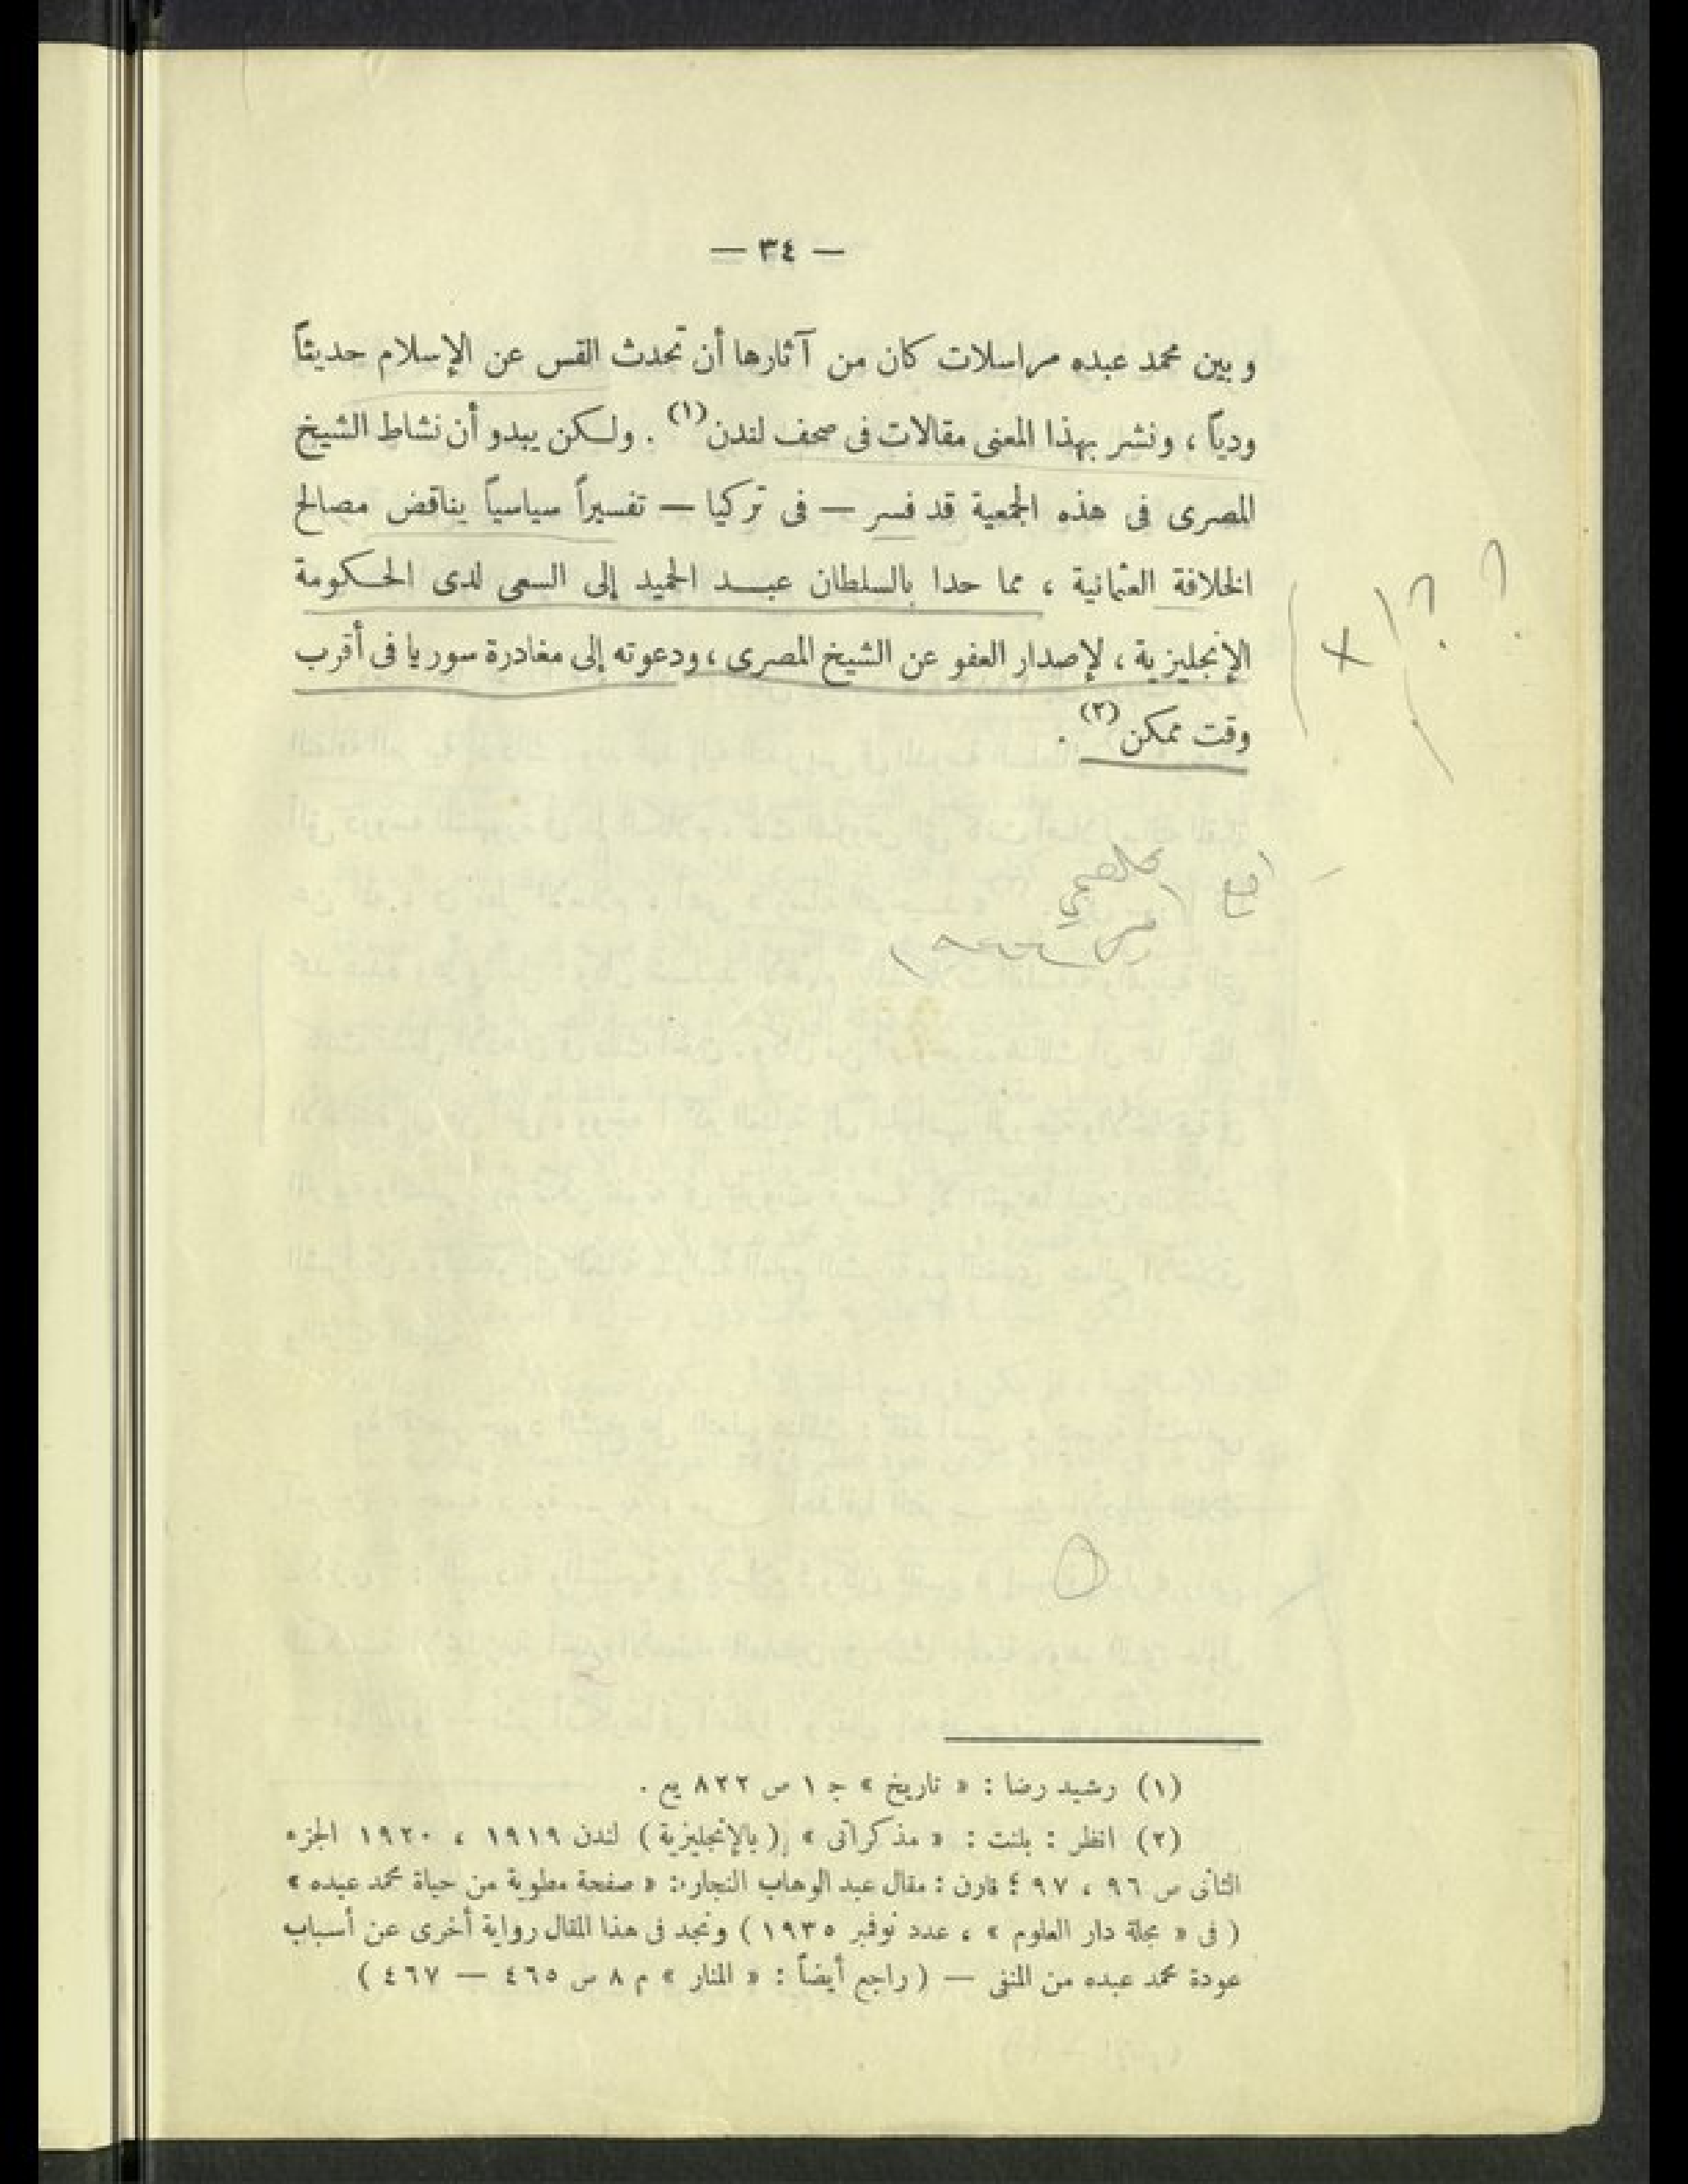 — ٣٤ —
وبين محمد عبده مراسلات كان من آثارها أن تحدث القس عن الإسلام حديثاً
ودياً ، ونشر بهذا المعنى مقالات فى صحف لندن (١) . ولكن يبدو أن نشاط الشيخ
المصرى فى هذه الجمعية قد فسر — فى تركيا — تفسيراً سياسياً يناقض مصالح
الخلافة العثمانية ، مما حدا بالسلطان عبد الحميد إلى السعى لدى الحكومة
الإنجليزية ، لإصدار العفو عن الشيخ المصرى ، ودعوته إلى مغادرة سوريا فى أقرب
وقت ممكن (٢) .
(١) رشيد رضا : « تاريخ » ج ١ ص ٨٢٢ يع .
(٢) انظر : بلنت : « مذكراتى » ( بالإنجليزية ) لندن ١٩١٩ ، ١٩٢٠ الجزء
الثانى ص ٩٦ ، ٩٧ ؛ قارن : مقال عبد الوهاب النجار : « صفحة مطوية من حياة محمد عبده »
( فى « مجلة دار العلوم » ، عدد نوفمبر ١٩٣٥ ) ونجد فى هذا المقال رواية أخرى عن أسباب
عودة محمد عبده من المنفى — ( راجع أيضاً : « المنار » م ٨ ص ٤٦٥ — ٤٦٧ )